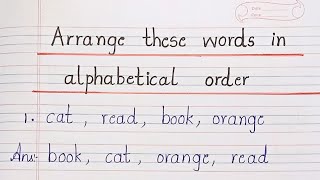 Arrange these words in
alphabetical order
1. cat, read, book, orange
Ans:- book, cat, orange, read